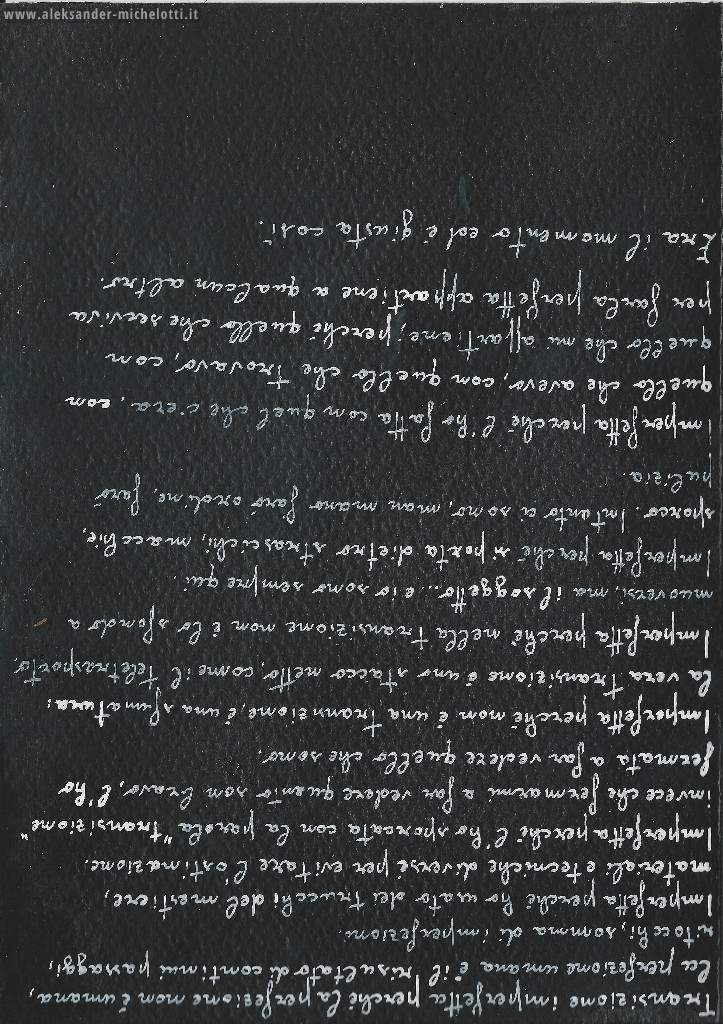 www.aleksander-michelotti.it
Transizione imperfetta perché la perfezione non è umana,
la perfezione umana è il risultato di continui passaggi,
ritocchi, somma di imperfezioni.
Imperfetta perché ho usato dei trucchi del mestiere,
materiali e tecniche diversi per evitare l'ostinazione.
Imperfetta perché l'ho sporcata con la parola "transizione"
invece che fermarmi a far vedere quanto son bravo, l'ho
fermata a far vedere quello che sono.
Imperfetta perché non è una transizione, è una sfumatura:
la vera transizione è uno stacco netto, come il teletrasporto
Imperfetta perché nella transizione non è lo sfondo a
muoversi, ma il soggetto... e io sono sempre qui.
Imperfetta perché si porta dietro strascichi, macchie,
sporco. Intanto ci sono, man mano farò ordine, farò
pulizia.
Imperfetta perché l'ho fatta con quel che c'era, con
quello che avevo, con quello che trovavo, con
quello che mi appartiene; perché quello che serviva
per farla perfetta appartiene a qualcun altro.
Era il momento ed è giusta così.